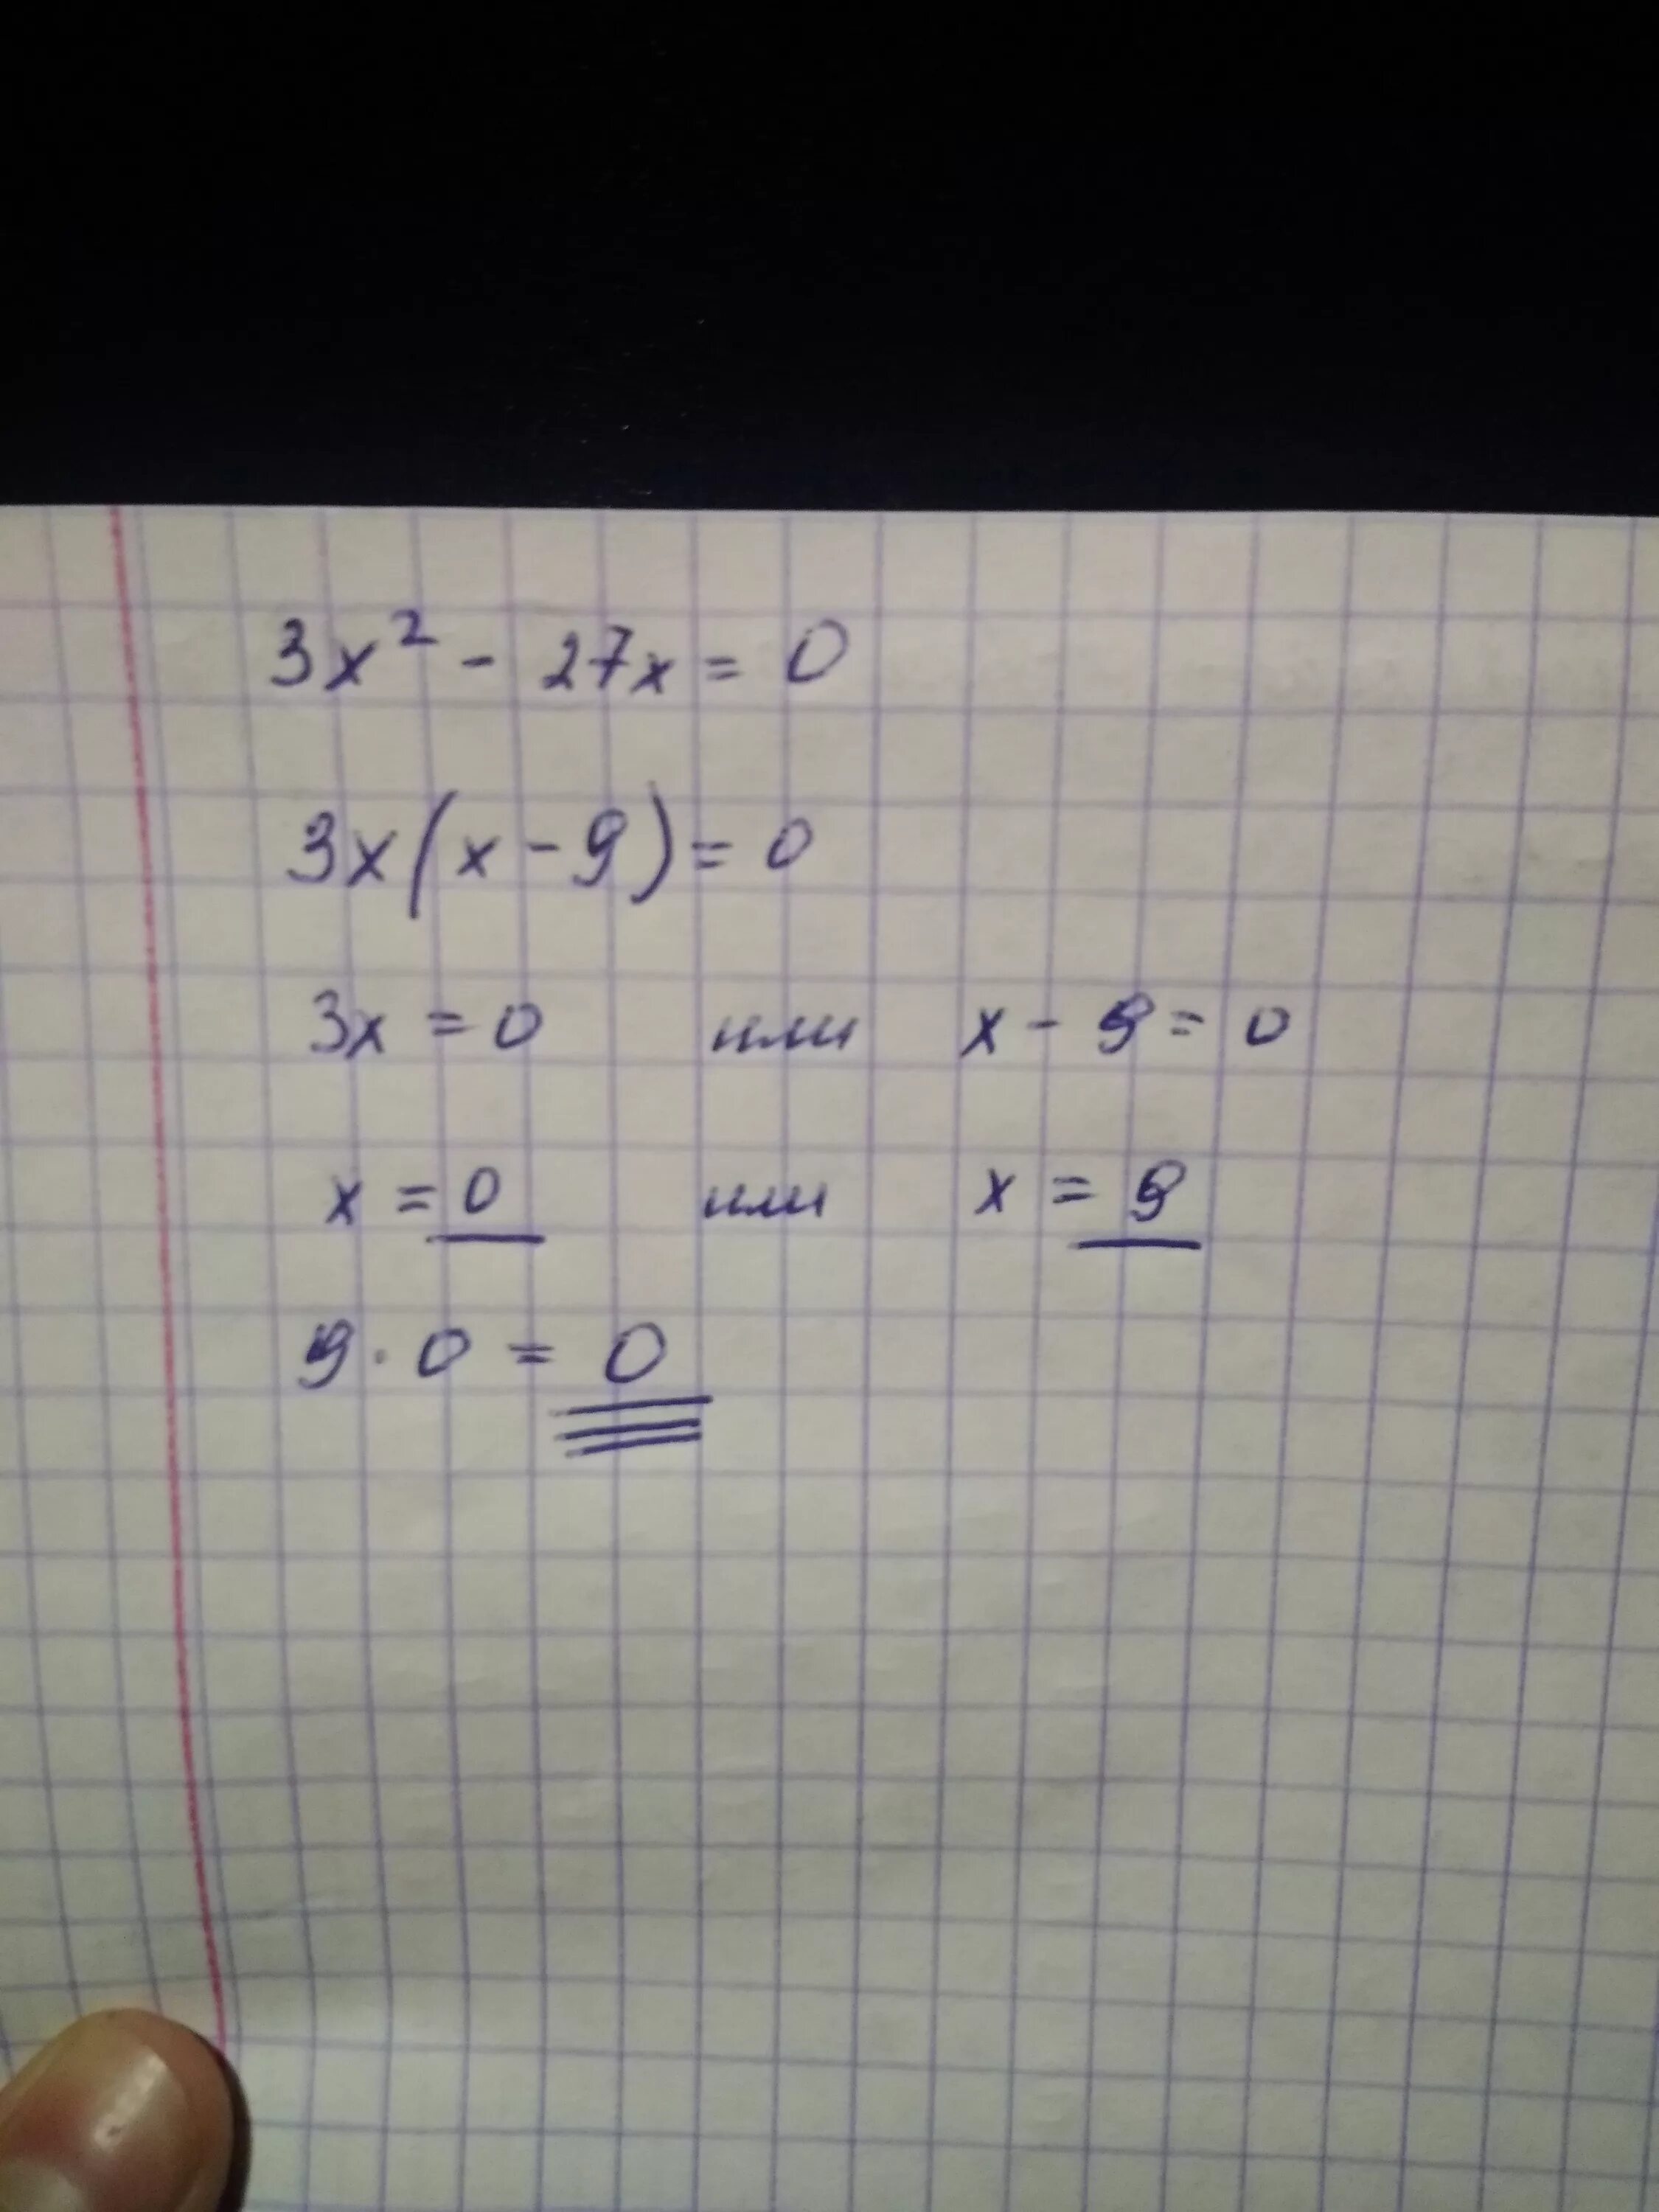 3x² - 27x = 0
3x(x - 9) = 0
3x = 0 или x - 9 = 0
x = 0 или x = 9
9 · 0 = 0